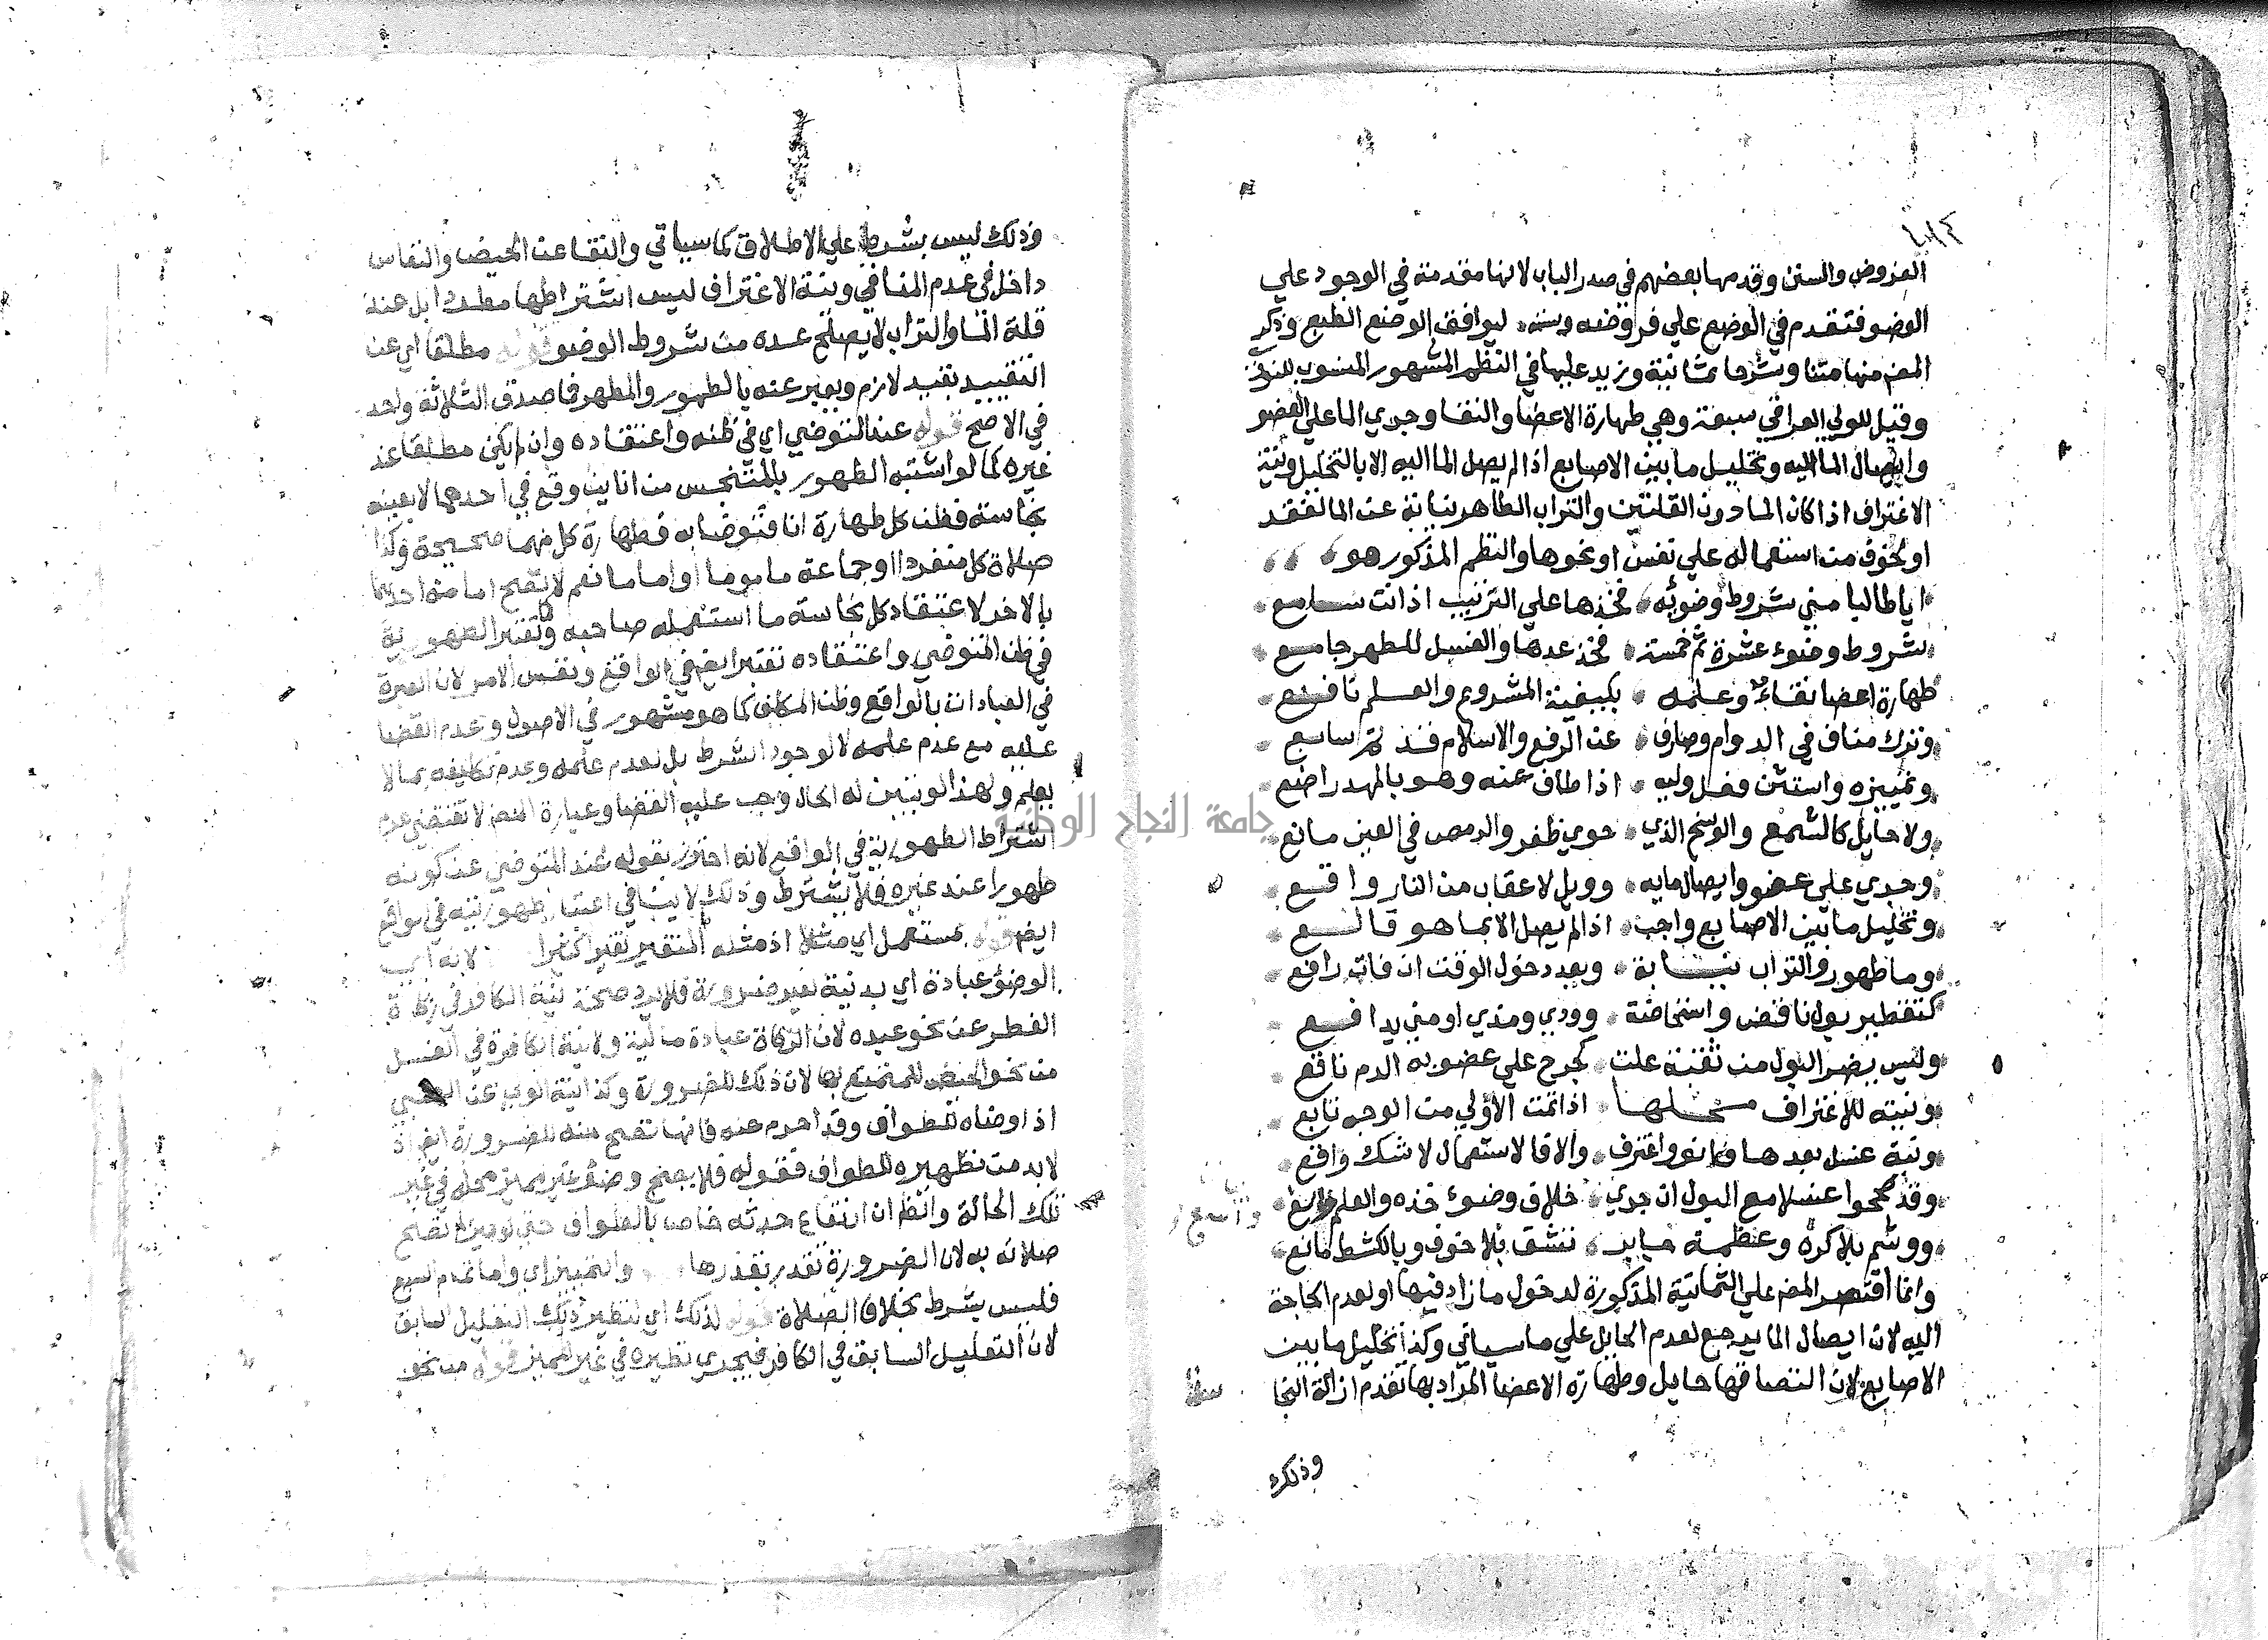 الفروض والسنن وقدمها بعضهم في صدر الباب لانها مقدمة في الوجود علي
الوضو فتقدم في الوضع علي فروضه وسننه ليوافق الوضع الطبع وذكر
المص منها متنا وشرحا ثمانية وزيد عليها في النظم المشهور المنسوب للنووي
وقيل للولي العراقي سبعة وهي طهارة الاعضا والنقا وجري الما علي العضو
وايصال الما اليه وتخليل ما بين الاصابع اذا لم يصل الما اليه الا بالتخليل ونية
الاغتراف اذا كان الما دون القلتين والتراب الطاهر نيابة عن الما لفقد
او لخوف من استعماله علي نفس او نحوها والنظم المذكور هو
ايا طالبا مني شروط وضوئه فخذها علي الترتيب اذ انت سامع
شروط وضوء عشرة ثم خمسة فخذ عدها والغسل للطهر جامع
طهارة اعضا نقاء وعلمه بكيفية المشروع والعلم نافع
وترك مناف في الدوام وصارف عن الرفع والاسلام قد تم سابع
وتمييزه واستثن فعل وليه اذا طاف عنه وهو بالمهد راضع
ولا حايل كالشمع والوسخ الذي حوي ظفر والرمص في العين مانع
وجري علي عضو وايصال مايه وويل لاعقاب من النار واقع
وتخليل ما بين الاصابع واجب اذا لم يصل الا بما هو قالع
وما طهور والتراب نيابة وبعد دخول الوقت ان فات رافع
كتقطير بول ناقض واستحاضة وودي ومذي او مني يدافع
وليس يضر البول من ثقبة علت كجرح علي عضو به الدم ناقع
ونيته للاغتراف محلها اذا تمت الاولي من الوجه تابع
ونية غسل بعدها فانو واغترف والا فالاستعمال لا شك واقع
وقد صححوا غسلا مع البول ان جري خلاف وضوء خذه والعلم واسع
ووشم بلا كره وعظمة جابر تشق بلا خوف وبالكشط مانع
وانما اقتصر المص علي الثمانية المذكورة لدخول ما زاد فيها او لعدم الحاجة
اليه لان ايصال الما يرجع لعدم الحايل علي ما سياتي وكذا تخليل ما بين
الاصابع لان التصاقها حايل وطهارة الاعضا المراد بها تقدم ازالة النجا
سة
وذلك
وذلك ليس بشرط علي الاطلاق كما سياتي والنقا عن الحيض والنفاس
داخل في عدم المنافي ونية الاغتراف ليس اشتراطها مطردا بل عند
قلة الما والتراب لا يصلح عده من شروط الوضو قوله مطلقا اي عن
التقييد بقيد لازم ويعبر عنه بالطهور والمطهر فما صدق الثلاثة واحد
في الاصح قوله عند المتوضي اي في ظنه واعتقاده وان لم يكن مطلقا عند
غيره كما لو اشتبه الطهور بالمتنجس من اناين وقع في احدهما لا بعينه
نجاسة فظن كل طهارة انا فتوضا به فطهارة كل منهما صحيحة وكذا
صلاة كل منفردا او جماعة ماموما او اماما نعم لا يصح ايتمام احدهما
بالاخر لاعتقاد كل نجاسة ما استعمله صاحبه وتعتبر الطهورية
في ظن المتوضي واعتقاده تعتبر ايض في الواقع ونفس الامر لان العبرة
في العبادات بالواقع وظن المكلف كما هو مشهور في الاصول وعدم القضا
عليه مع عدم علمه لا لوجود الشرط بل لعدم علمه وعدم تكليفه بما لا
يعلم ولهذا لو تبين له الحال وجب عليه القضا وعبارة المص لا تقتضي عدم
اشتراط الطهورية في الواقع لانه احترز بقوله عند المتوضي عن كونه
طهورا عند غيره فلا يشترط وذلك لا ينافي اعتبار طهوريته في الواقع
ايض قوله بمستعمل اي مثلا اذ مثله المتغير تغيرا كثيرا لانه اي
الوضو عبادة اي بدنية لغير ضرورة فلا يرد صحة نية الكافر في زكاة
الفطر عن نحو عبده لان الزكاة عبادة مالية ولا نية الكافرة في الغسل
من نحو الحيض للتمتع بها لان ذلك للضرورة وكذا نية الولي عن الصبي
اذا وضاه للطواف وقد احرم عنه فانها تصح منه للضرورة ايض اذ
لا بد من تطهيره للطواف فقوله فلا يصح وضو غير مميز محله في غير
تلك الحالة وانظر ان ارتفاع حدثه خاص بالطواف حتي لو ميز لم تصح
صلاته به لان الضرورة تقدر بقدرها والتمييز اي واما تمام السبع
فليس بشرط بخلاف الصلاة قوله لذلك اي لنظير ذلك التعليل السابق
لان التعليل السابق في الكافر فيجري نظيره في غير المميز قوله من نحو
جامعة النجاح الوطنية